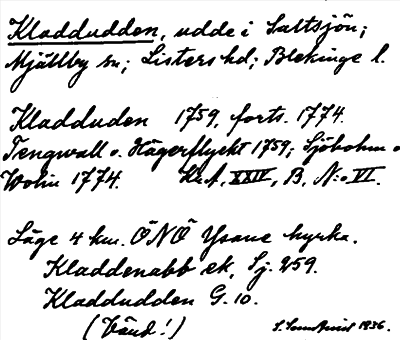 Kladdudden, udde i Saltsjön;
Mjällby sn; Listers hd; Blekinge l.
Kladduden 1759, forts. 1774.
Tengwall o. Hägerflyckt 1759; Sjöbohm o
Wolin 1774. Kr. A, XXIV, B, N:o VI.
Läge 4 km. ÖNÖ Ysane kyrka.
Kladdenabb ek, Sj. 259.
Kladdudden G. 10.
(Vänd!) 1936.